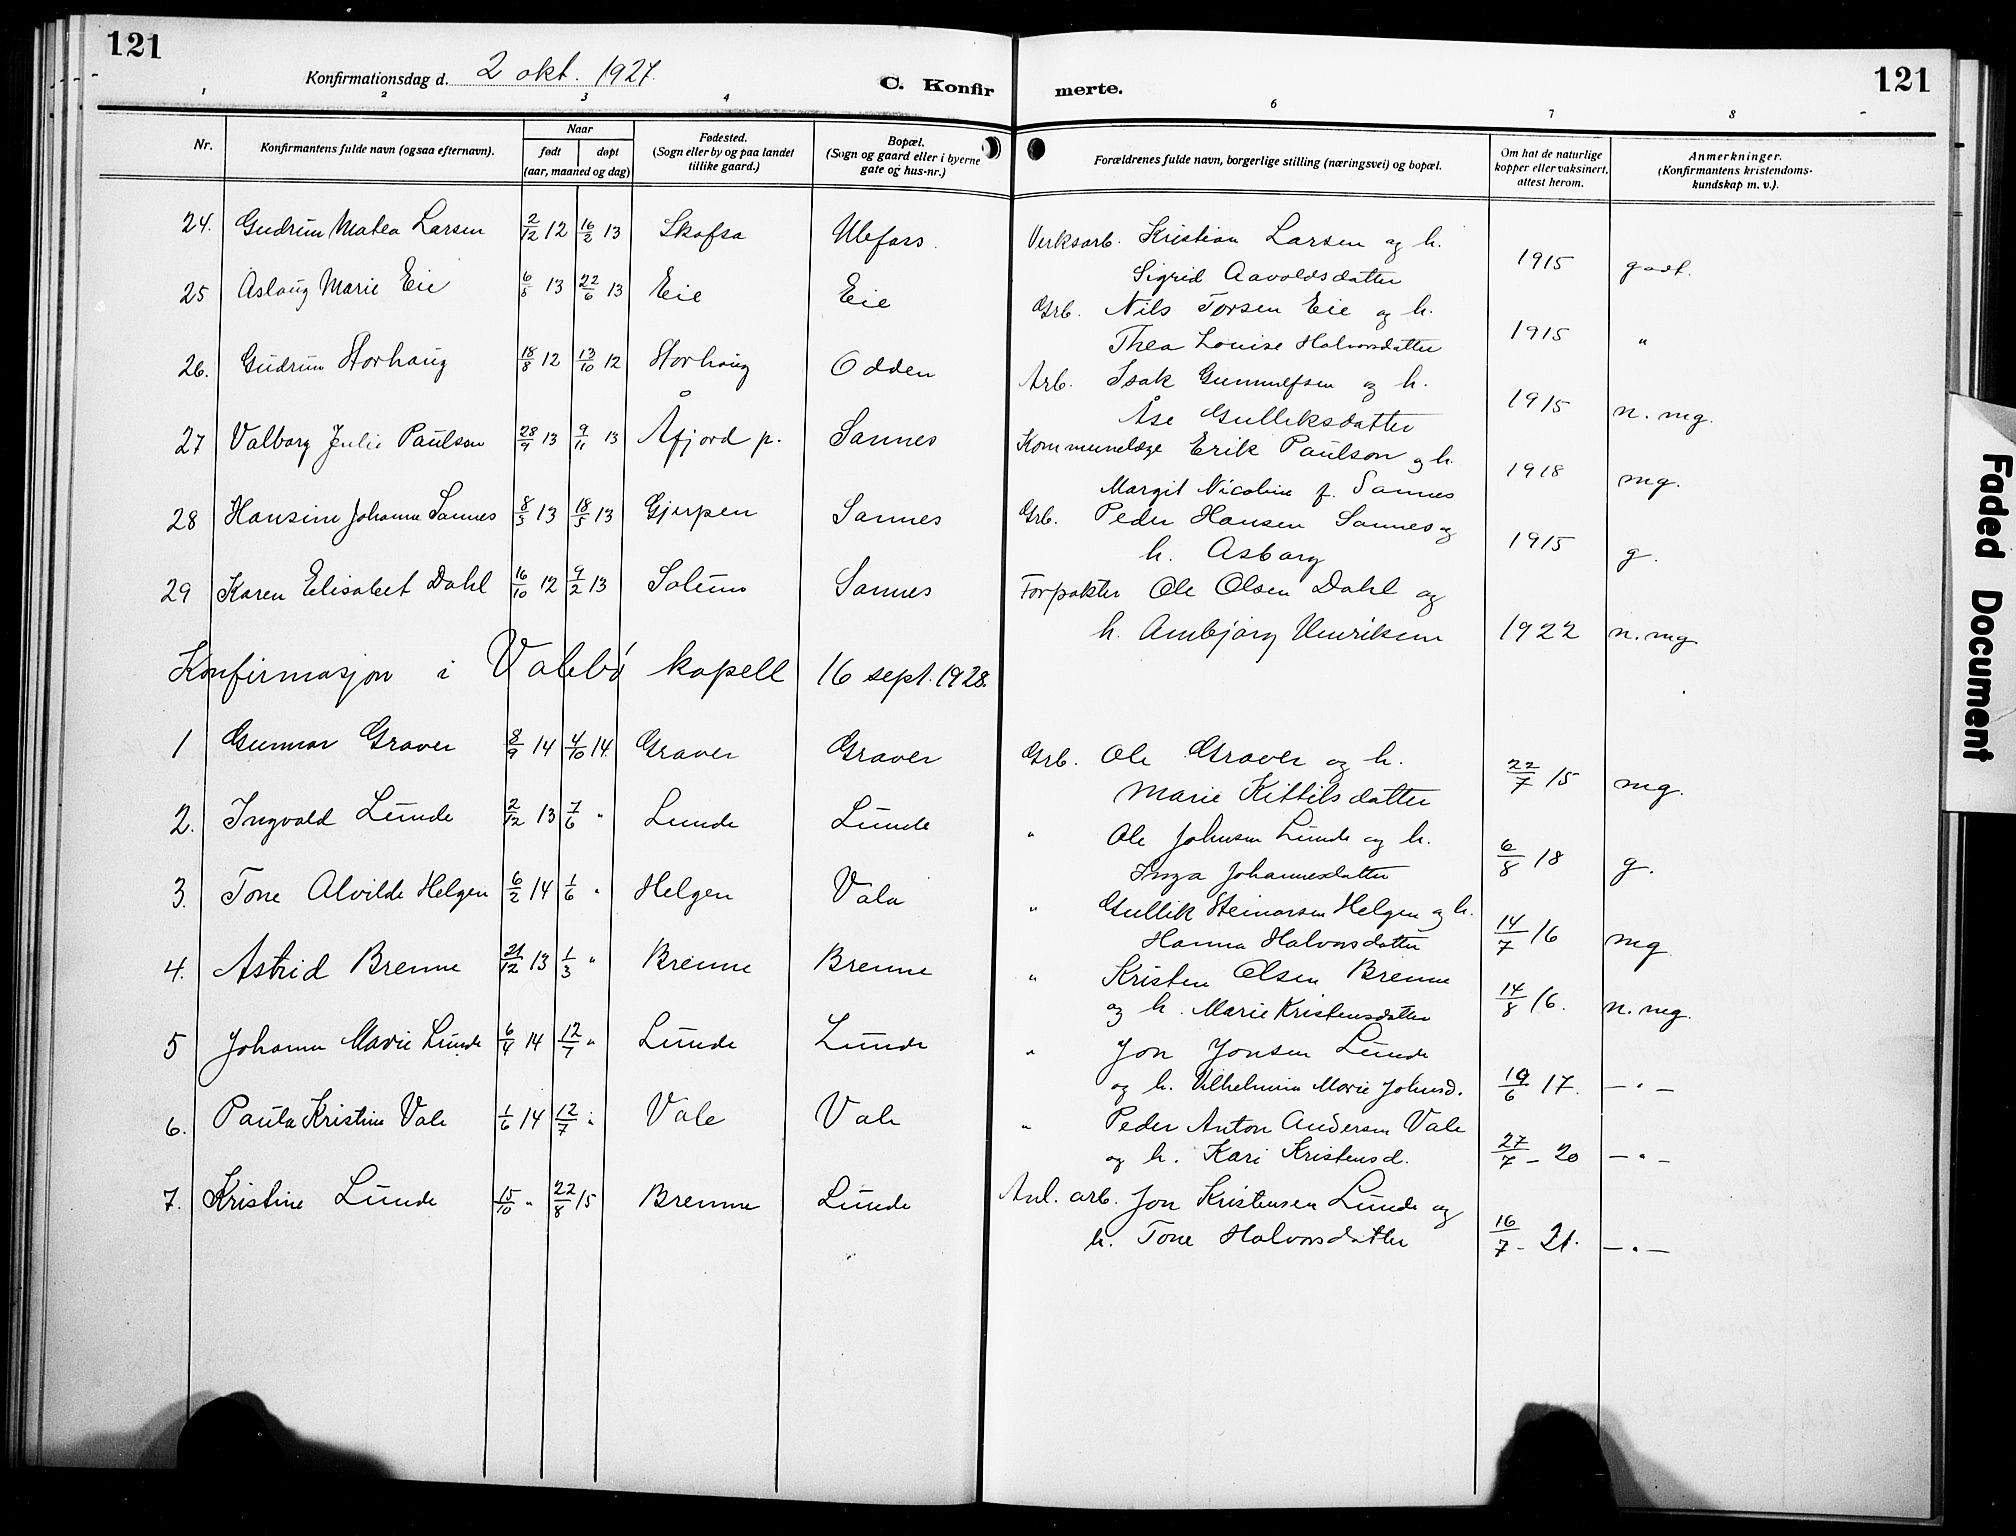 121
Konfirmationsdag d. 2 okt. 1927.
C. Konfir
merte.
121
1 2 3 4 6 7 8
Nr.
Konfirmantens fulde navn (ogsaa efternavn).
Naar
født døpt
(aar, maaned og dag)
Fødested.
(Sogn eller by og paa landet
tillike gaard.)
Bopæl.
(Sogn og gaard eller i byerne
gate og hus-nr.)
Forældrenes fulde navn, borgerlige stilling (næringsvei) og bopæl.
Om hat de naturlige
kopper eller vaksinert,
attest herom.
Anmerkninger.
(Konfirmantens kristendoms-
kundskap m. v.).
24. Gudrun Matea Larsen 2/12 12 16/2 13 Skafsa Ulefoss. Verksarb. Kristian Larsen og h.
Sigrid Aavoldsdatter 1915 godt.
25 Aslaug Marie Eie 6/5 13 22/6 13 Eie Eie Grb. Nils Torsen Eie og h.
Thea Louise Halvorsdatter 1915 "
26. Gudrun Storhaug 18/8 12 13/10 12 Storhaug Odden Arb. Isak Gunnulfsen og h.
Åse Gulleksdatter 1915 n. mg.
27 Valborg Julie Paulson 28/9 13 9/11 13 Åfjord p. Sannes Kommunelæge Erik Paulson og h.
Margit Nicoline f. Sannes 1918 mg.
28 Hansine Johanne Sannes 8/3 13 18/5 13 Gjerpen Sannes Grb. Peder Hansen Sannes og
h. Asborg 1915 g.
29 Karen Elisabet Dahl 16/10 12 9/2 13 Solum Sannes Forpakter Ole Olsen Dahl og
h. Ambjørg Henriksen 1922 n. mg
Konfirmasjon i Valebø kapell 16 sept. 1928.
1 Gunnar Graver 8/9 14 4/10 14. Graver Graver Grb. Ole Graver og h.
Marie Kittilsdatter 22/7 15 mg.
2. Ingvald Lunde 2/12 13 7/6 " Lunde Lunde " Ole Johnsen Lunde og h.
Inga Johannesdatter 6/8 18 g.
3. Tone Alvilde Helgen 6/2 14 1/6 " Helgen Vala " Gullik Steinarsen Helgen og h.
Hanna Halvorsdatter 14/7 16 mg
4. Astrid Brenne 21/12 13 1/3 " Brenne Brenne " Kristen Olsen Brenne
og h. Marie Kristensdatter 14/8 16. n. mg.
5 Johanne Marie Lunde 6/4 14 12/7 " Lunde Lunde " Jon Jonsen Lunde
og h. Vilhelmine Marie Johnsd. 19/6 17. — " —
6. Paula Kristine Vale 1/6 14 12/7 " Vale Vale " Peder Anton Andersen Vale
og h. Kari Kristensd. 27/7 - 20 — " —
7. Kristine Lunde 15/10 " 22/8 15 Brenne Lunde Anl. arb. Jon Kristensen Lunde og
h. Tone Halvorsdatter 16/7 - 21. — " —
Faded Document